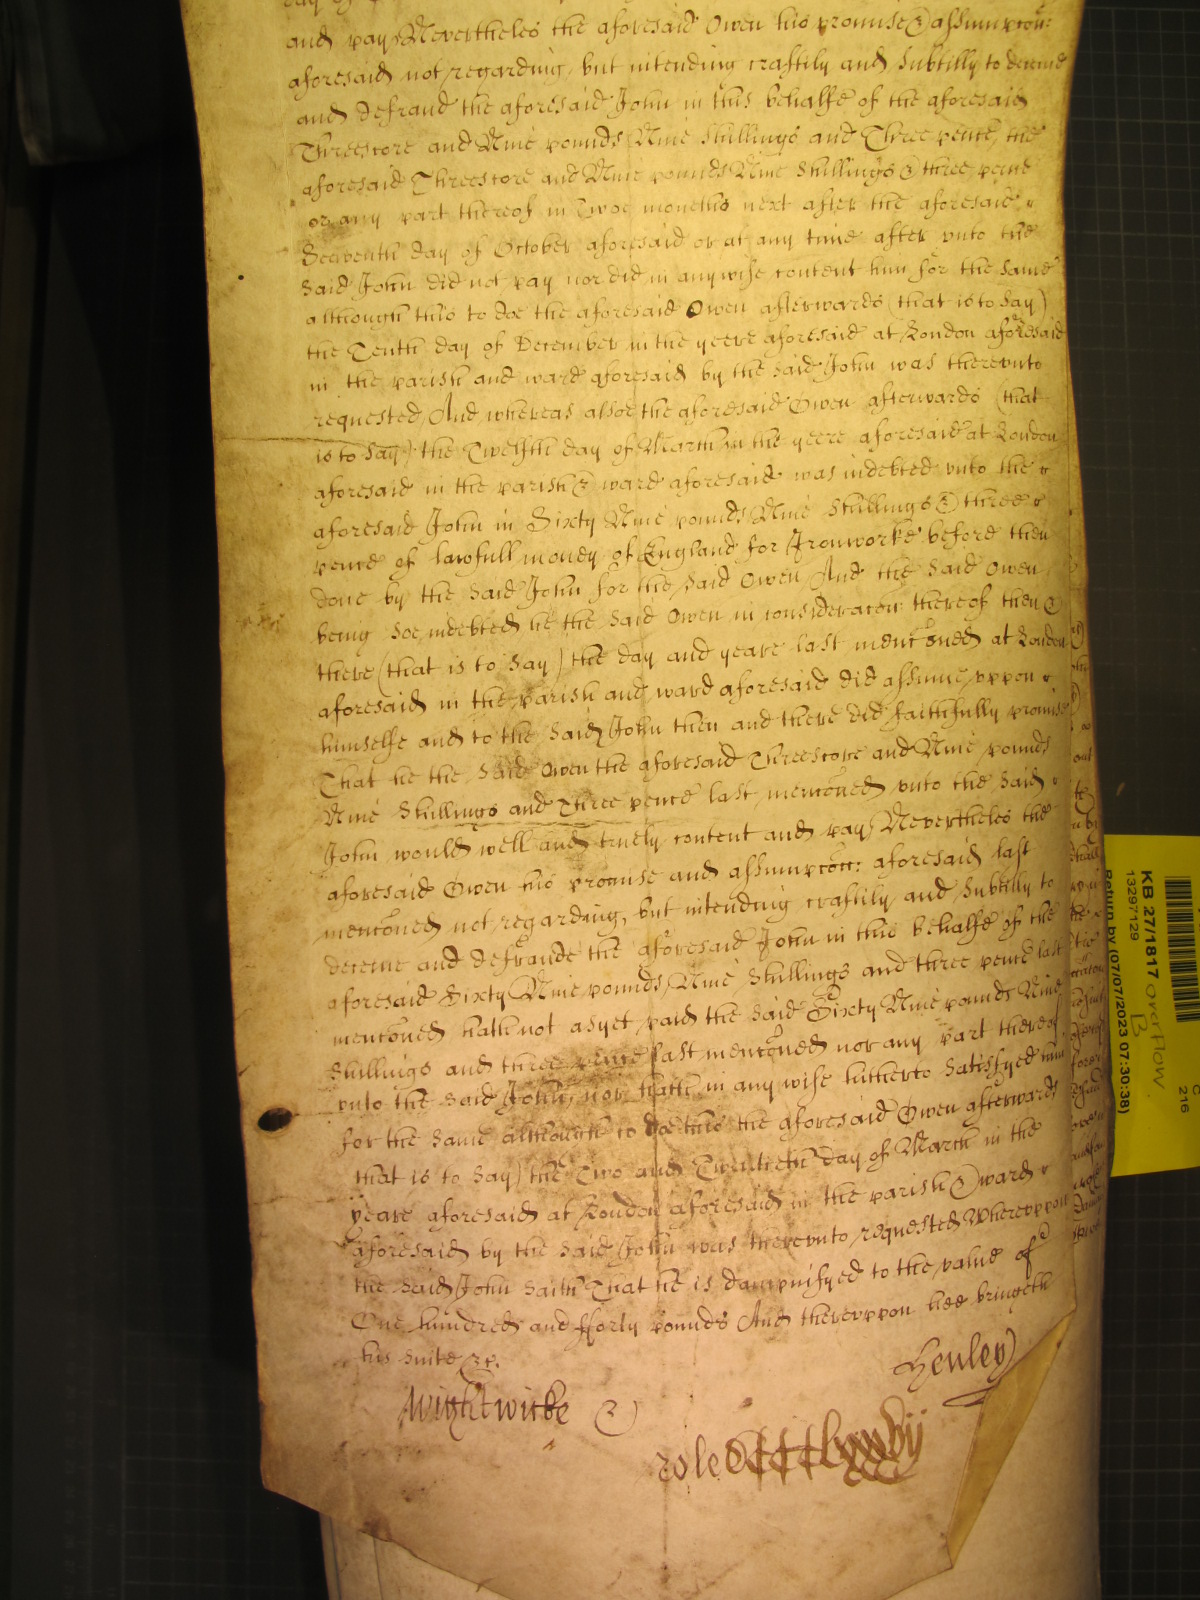 and pay Nevertheles the aforesaid Owen his promise & assumpcon:
aforesaid not regarding but intending craftily and subtilly to deceive
and defraud the aforesaid John in this behalfe of the aforesaid
Threescore and Nine pounds Nine shillings and Three pence, the
aforesaid Threescore and Nine pounds Nine shillings & three pence
or any part thereof in Twoe moneths next after the aforesaid
Seaventh day of October aforesaid or at any time after vnto the
said John did not pay nor did in any wise content him for the same
although this to doe the aforesaid Owen afterwards (that is to say)
the Tenth day of December in the yeere aforesaid at London aforesaid
in the parish and ward aforesaid by the said John was therevnto
requested, And whereas alsoe the aforesaid Owen afterwards (that
is to say) the Twelfth day of March in the yeere aforesaid at London
aforesaid in the parish & ward aforesaid was indebted vnto the
aforesaid John in Sixty Nine pounds Nine shillings & three
pence of lawfull money of England for Ironworke before then
done by the said John for the said Owen And the said Owen
being soe indebted he the said Owen in consideracon thereof then &
there (that is to say) the day and yeare last menconed at London
aforesaid in the parish and ward aforesaid did assume vppon
himselfe and to the said John then and there did faithfully promise
That he the said Owen the aforesaid Threescore and Nine pounds
Nine shillings and Three pence last menconed vnto the said
John would well and truely content and pay Nevertheles the
aforesaid Owen his promise and assumpcon: aforesaid last
menconed not regarding, but intending craftily and subtilly to
deceive and defraude the aforesaid John in this behalfe of the
aforesaid Sixty Nine pounds Nine shillings and three pence last
menconed hath not as yet paid the said Sixty Nine pounds Nine
shillings and three pence last menconed nor any part thereof
vnto the said John, nor hath in any wise hitherto satisfyed him
for the same although to doe this the aforesaid Owen afterwards
that is to say) the Two and Twentieth day of March in the
yeare aforesaid at London aforesaid in the parish & ward
aforesaid by the said John was therevnto requested Wherevppon
the said John saith That he is dampnifyed to the value of
One hundred and fforty pounds And therevppon hee bringeth
his suite &c.
Henley)
Wightwicke &)
role
KB 27/1817 overflow
B
13297129
Return by (07/07/2023 07:30:38)
C
216